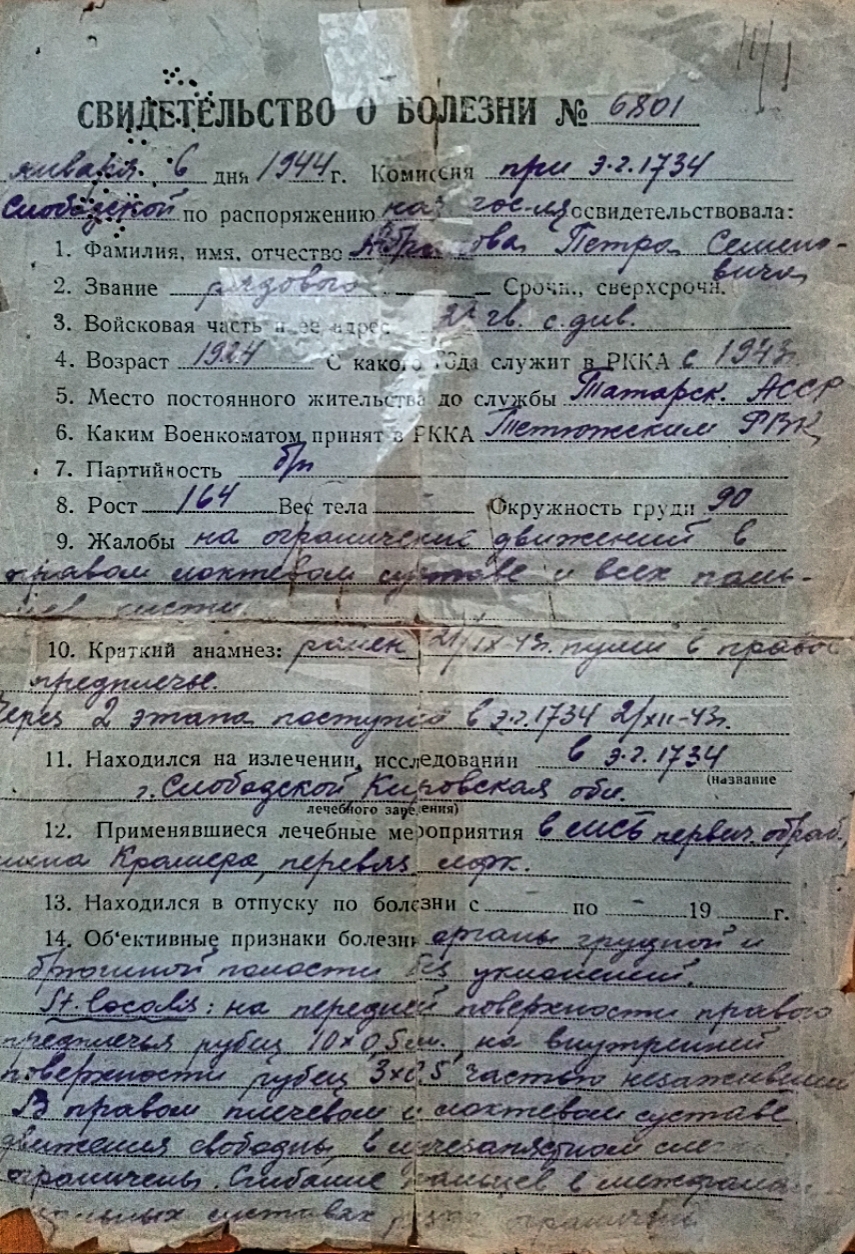 СВИДЕТЕЛЬСТВО О БОЛЕЗНИ № 6801
января 6 дня 1944 г. Комиссия при э.г. 1734
Слободской по распоряжению нач гос-ля освидетельствовала:
1. Фамилия, имя, отчество Петра Семено-
вича
2. Звание рядового Срочн., сверхсрочн.
3. Войсковая часть и ее адрес гв. с. див.
4. Возраст 1924 С какого года служит в РККА с 1943г.
5. Место постоянного жительства до службы Татарск. АССР
6. Каким Военкоматом принят в РККА Тетюжским РВК
7. Партийность б/п
8. Рост 164 Вес тела - Окружность груди 90
9. Жалобы на ограничение движений в
правом локтевом суставе и всех паль-
цев кисти
10. Краткий анамнез: ранен 21/IX-43г. пулей в правое
предплечье.
Через 2 этапа поступил в э.г. 1734 2/XII-43г.
11. Находился на излечении, исследовании в э.г. 1734
(название
г. Слободской Кировская обл.
лечебного заведения)
12. Применявшиеся лечебные мероприятия в МСБ первич. обраб.,
шина Крамера, перевяз лфк.
13. Находился в отпуску по болезни с по - 19 г.
14. Об'ективные признаки болезни органы грудной и
брюшной полости без уклонений.
St. localis: на передней поверхности правого
предплечья рубец 10×0,5см., на внутренней
поверхности рубец 3×0,5 частью незаживший
В правом плечевом и локтевом суставе
движения свободны, в лучезапястном
ограничены. Сгибание пальцев в
суставах ограничено